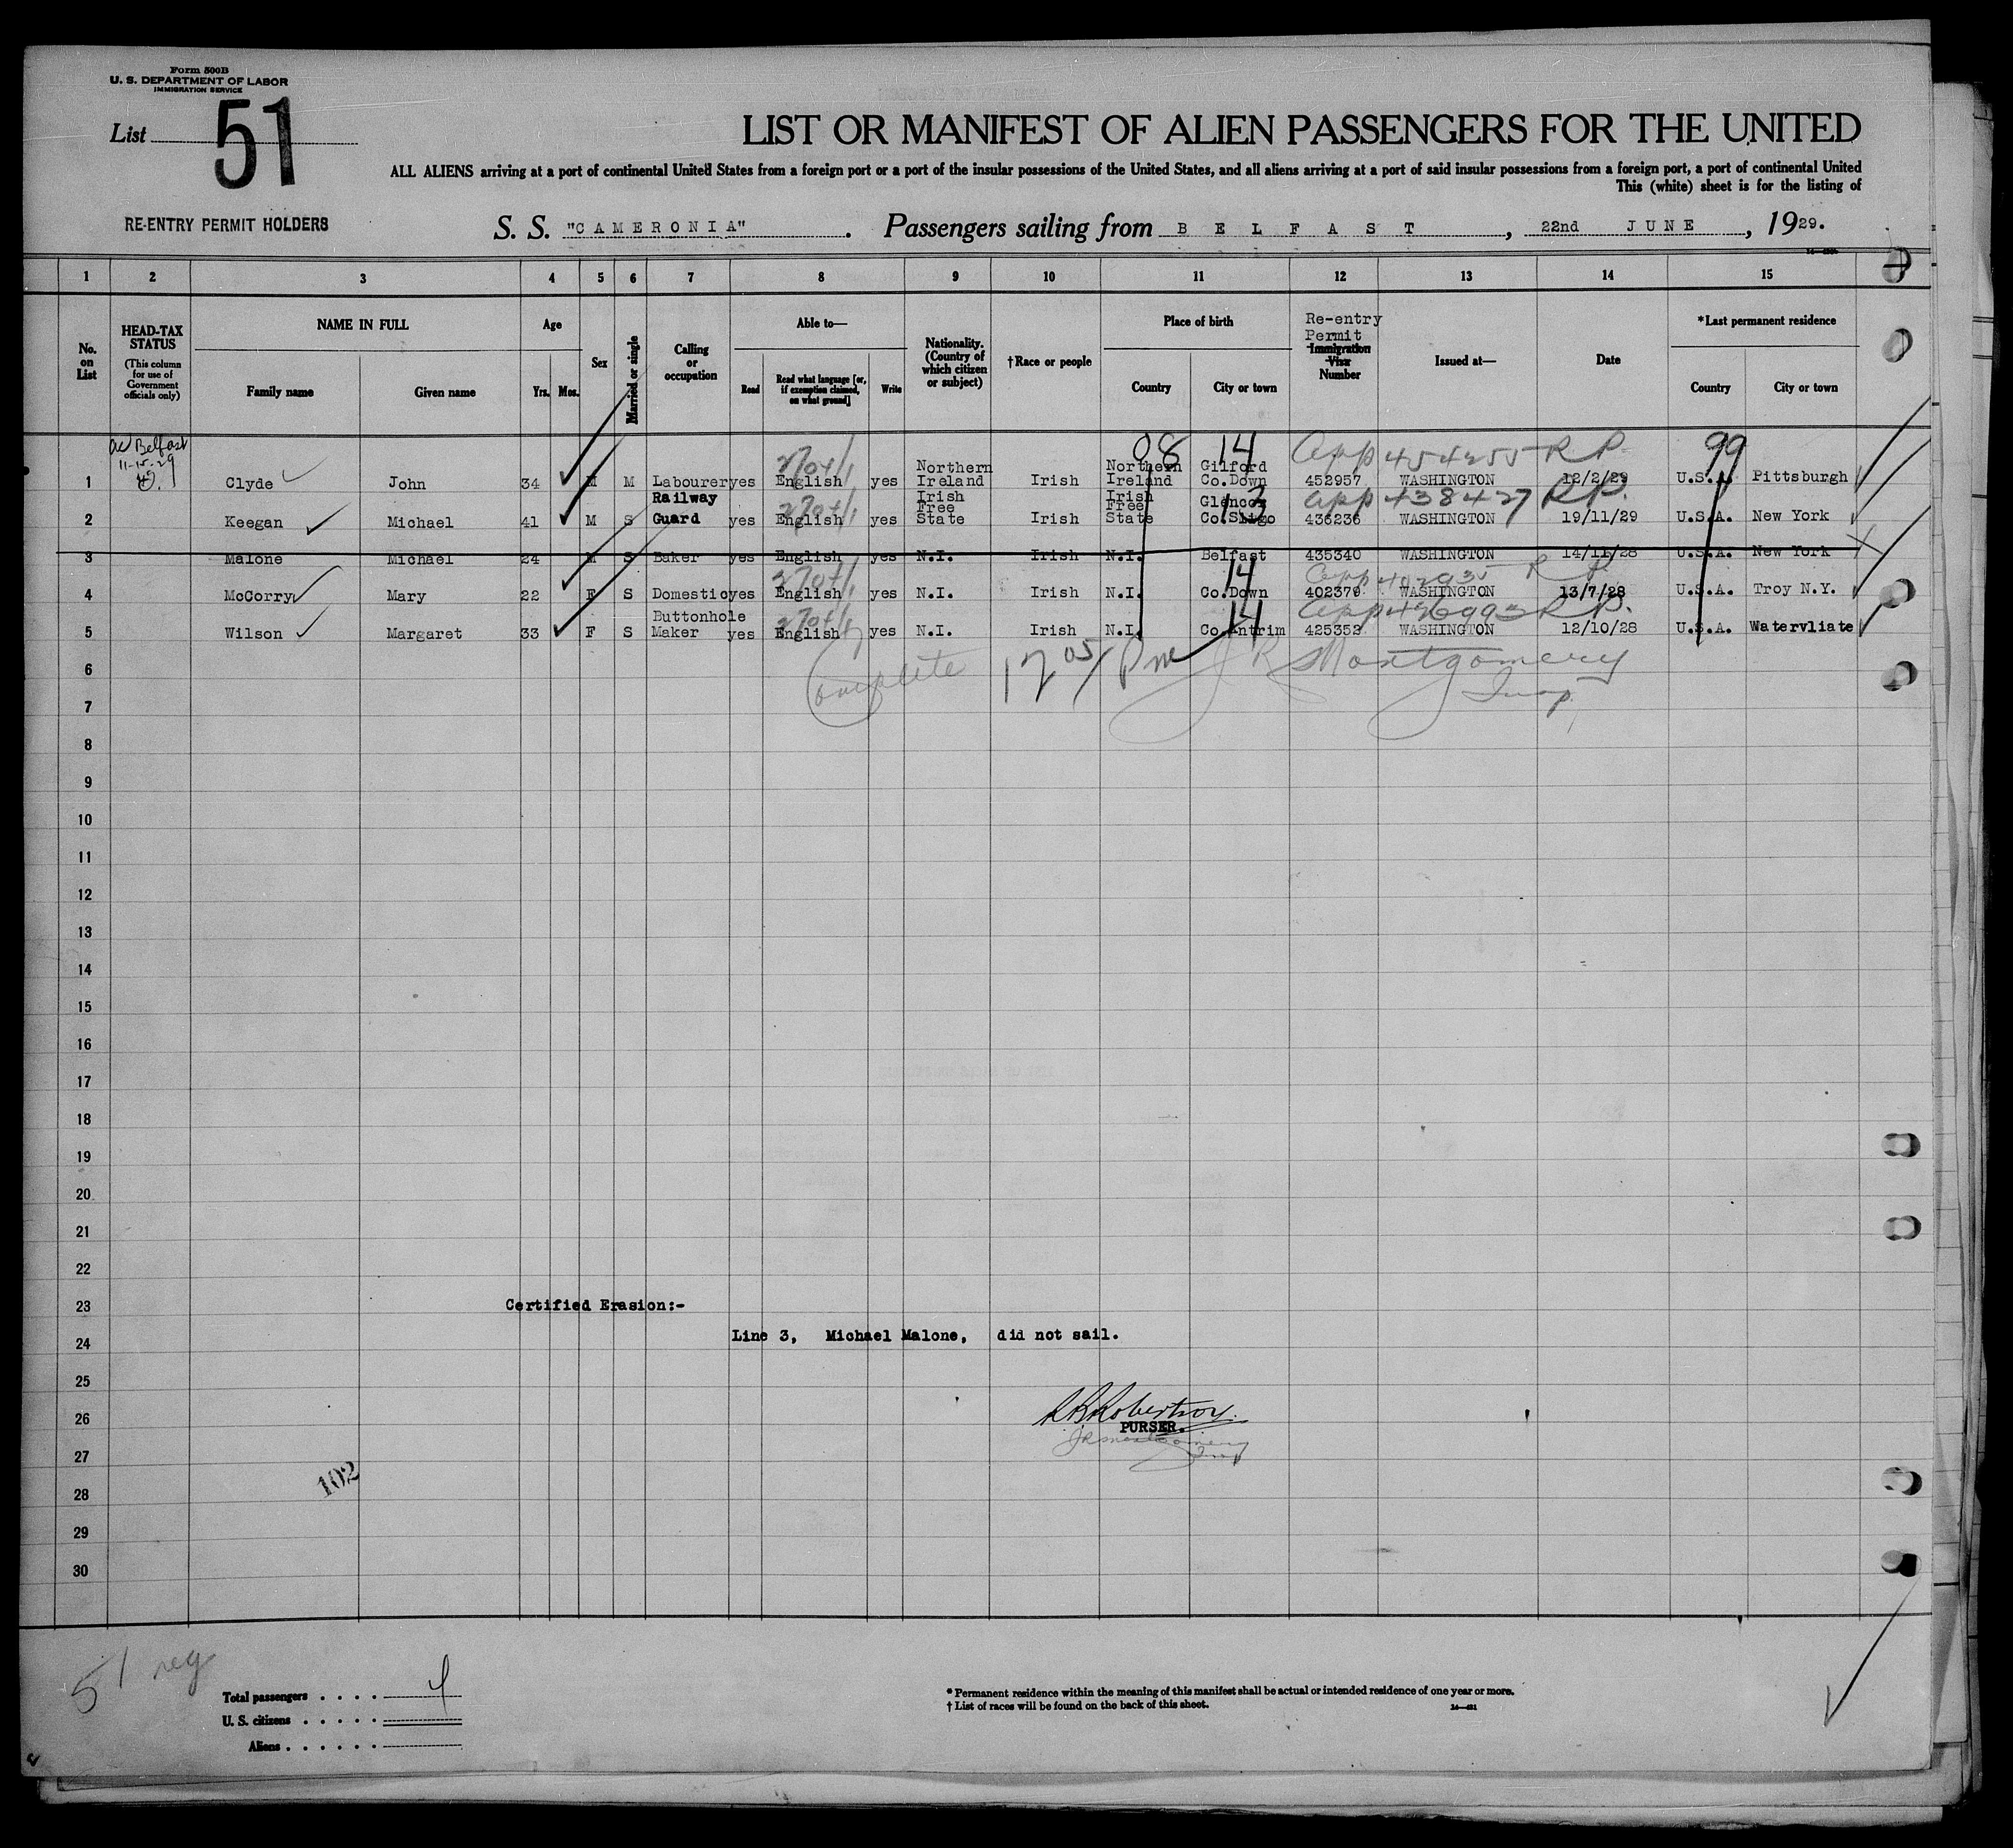 Form 500B
U. S. DEPARTMENT OF LABOR
IMMIGRATION SERVICE
List 51
LIST OR MANIFEST OF ALIEN PASSENGERS FOR THE UNITED
ALL ALIENS arriving at a port of continental United States from a foreign port or a port of the insular possessions of the United States, and all aliens arriving at a port of said insular possessions from a foreign port, a port of continental United
This (white) sheet is for the listing of
RE-ENTRY PERMIT HOLDERS
S. S. "CAMERONIA". Passengers sailing from BELFAST, 22nd JUNE, 1929.
1 2 3 4 5 6 7 8 9 10 11 12 13 14 15
No. on List
HEAD-TAX STATUS
(This column for use of Government officials only)
NAME IN FULL
Family name
Given name
Age
Yrs. Mos.
Sex
Married or single
Calling or occupation
Able to—
Read
Read what language [or, if exemption claimed, on what ground]
Write
Nationality. (Country of which citizen or subject)
†Race or people
Place of birth
Country
City or town
Re-entry Permit
Immigration Visa Number
Issued at—
Date
*Last permanent residence
Country
City or town
Belfast
11-15-29
08 14 App 454255 RP. 99
1 Clyde John 34 M M Labourer yes English yes Northern Ireland Irish Northern Ireland Gilford Co.Down 452957 WASHINGTON 12/2/29 U.S.A. Pittsburgh
13 App 438427 RP.
2 Keegan Michael 41 M S Railway Guard yes English yes Irish Free State Irish Irish Free State Glencos Co.Sligo 436236 WASHINGTON 19/11/29 U.S.A. New York
3 Malone Michael 24 M S Baker yes English yes N.I. Irish N.I. Belfast 435340 WASHINGTON 14/11/28 U.S.A. New York
14 App RP
4 McCorry Mary 22 F S Domestic yes English yes N.I. Irish N.I. Co.Down 402379 WASHINGTON 13/7/28 U.S.A. Troy N.Y.
14 App RP.
5 Wilson Margaret 33 F S Buttonhole Maker yes English yes N.I. Irish N.I. Co.Antrim 425352 WASHINGTON 12/10/28 U.S.A. Watervliate
Complete 1205 Pm J R Montgomery
Insp.
6
7
8
9
10
11
12
13
14
15
16
17
18
19
20
21
22
23 Certified Erasion:-
24 Line 3, Michael Malone, did not sail.
25
26 Robertson.
PURSER.
J R Montgomery
Insp
27
102
28
29
30
51 reg
Total passengers . . . . 4
U. S. citizens . . . . .
Aliens . . . . . .
* Permanent residence within the meaning of this manifest shall be actual or intended residence of one year or more.
† List of races will be found on the back of this sheet.